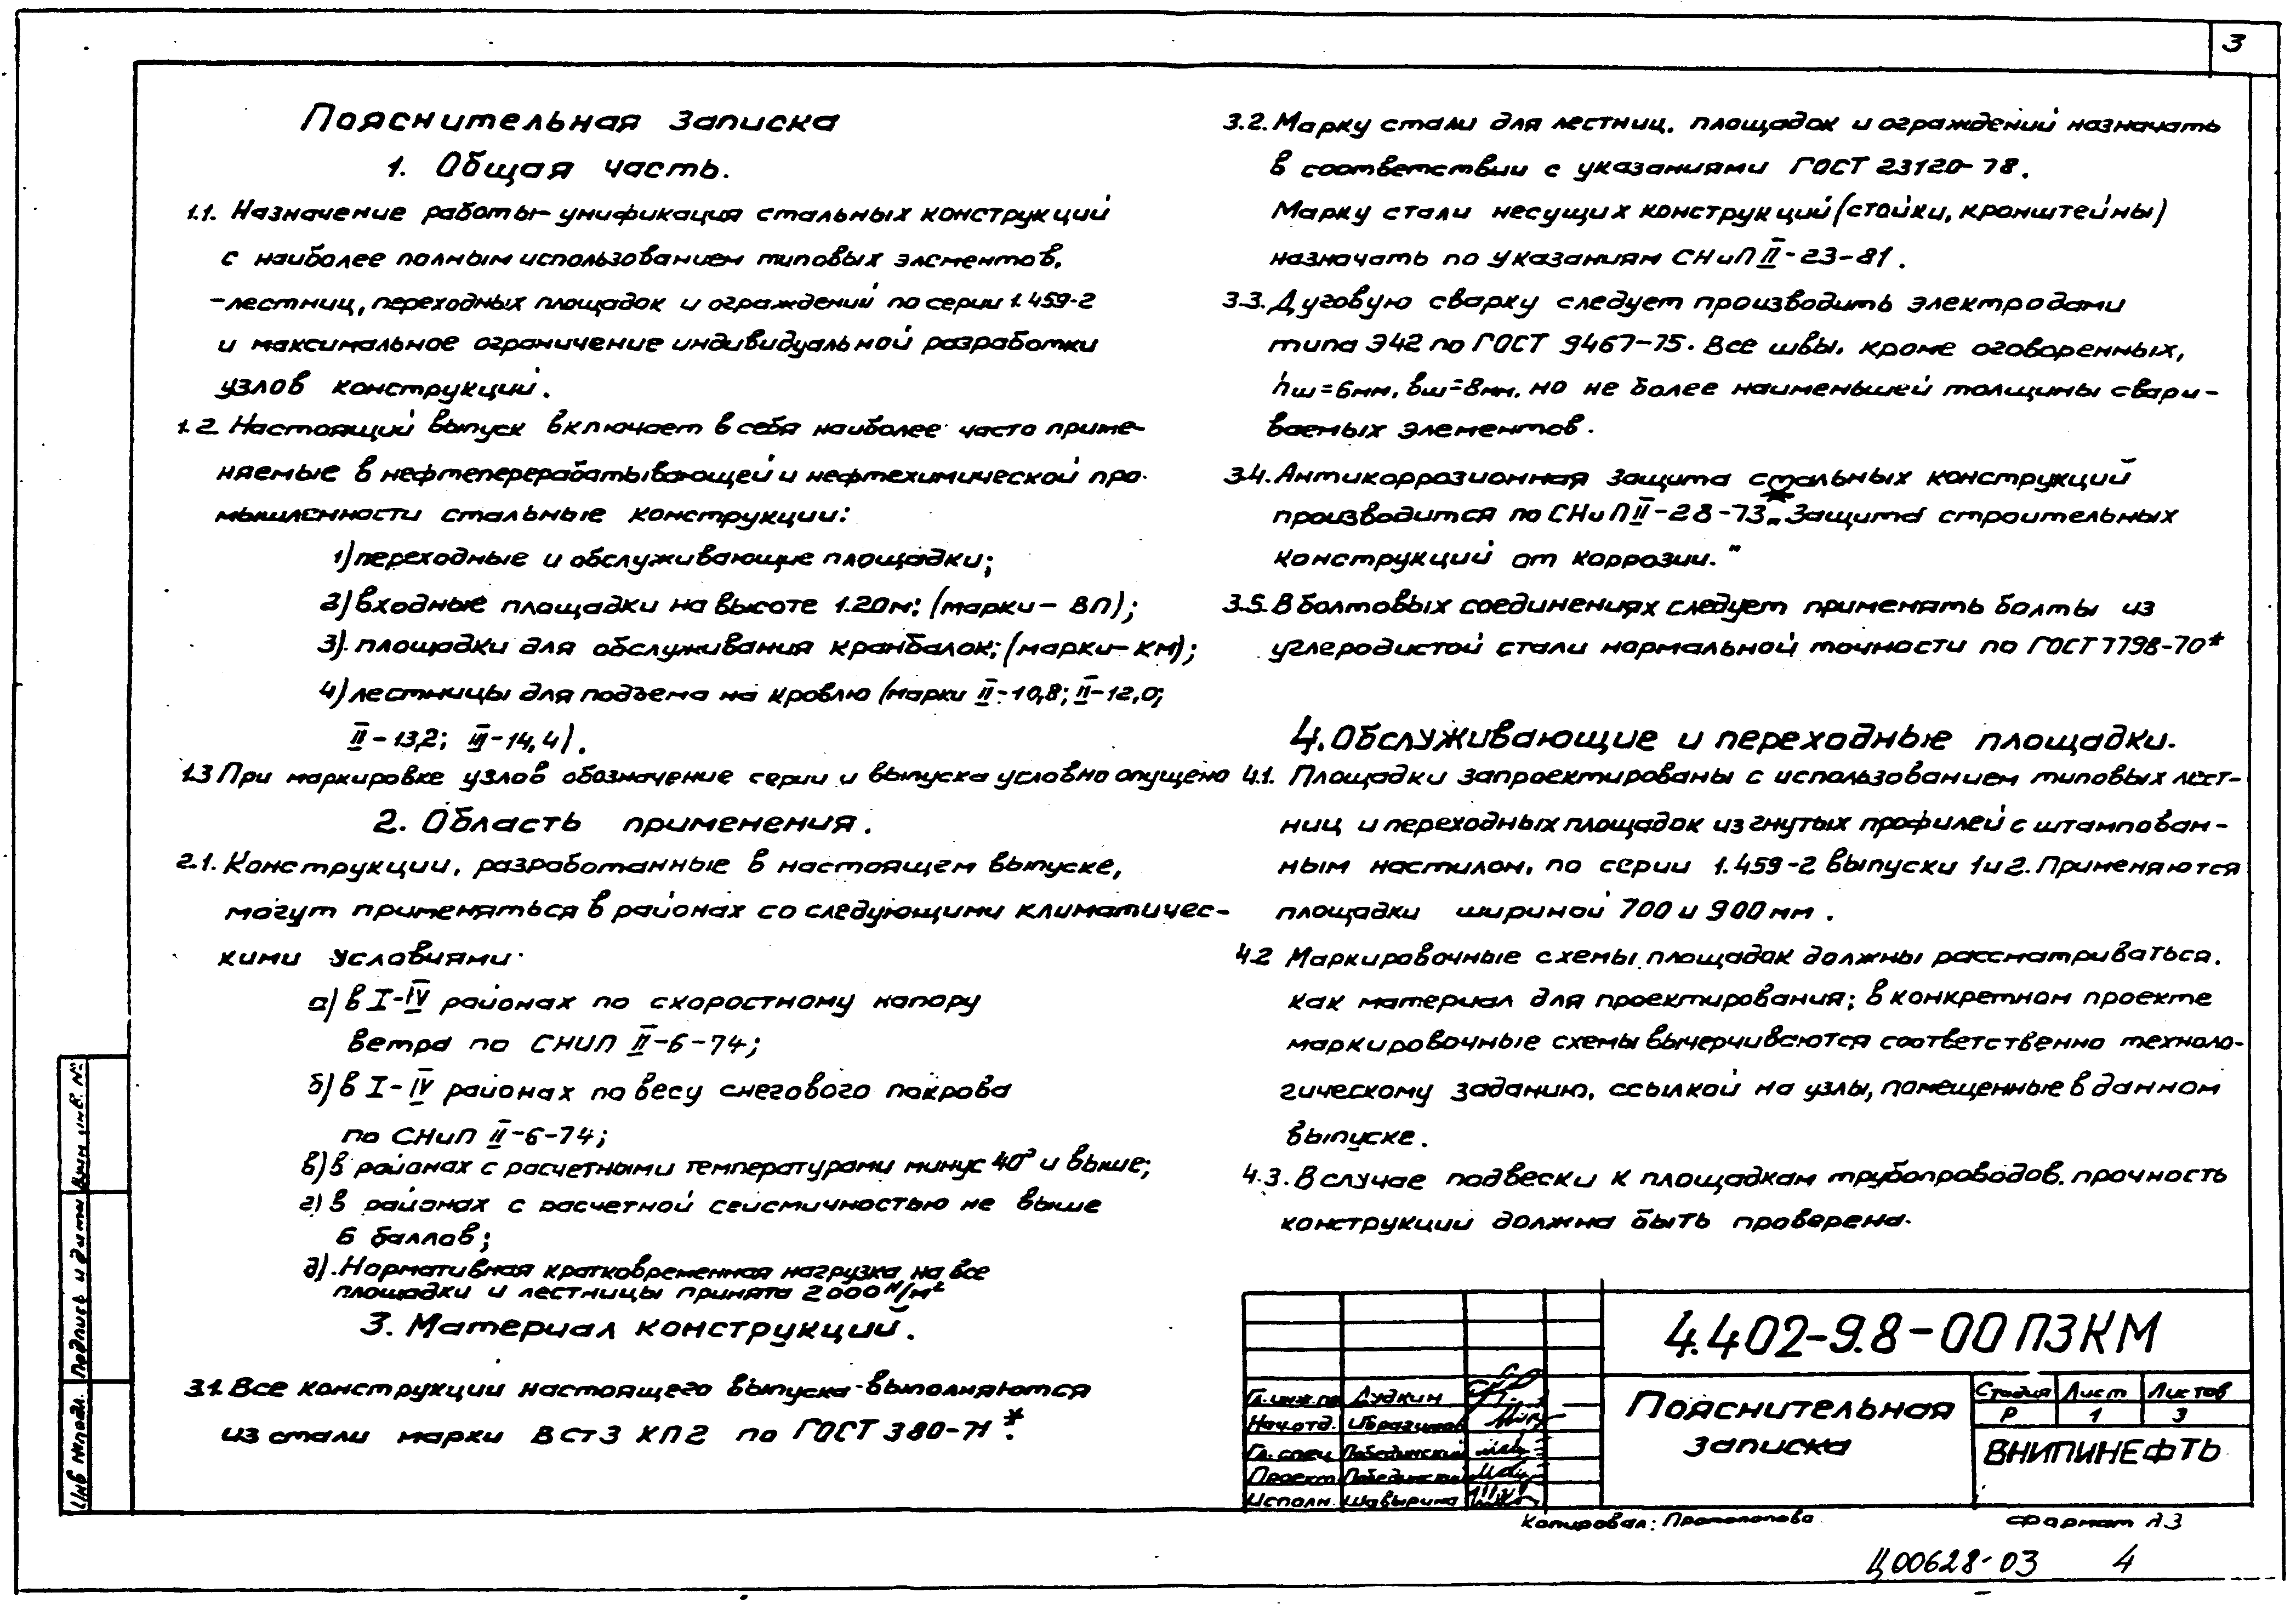 3
Пояснительная записка
1. Общая часть.
1.1. Назначение работы-унификация стальных конструкций
с наиболее полным использованием типовых элементов,
-лестниц, переходных площадок и ограждений по серии 1.459-2
и максимальное ограничение индивидуальной разработки
узлов конструкций.
1.2. Настоящий выпуск включает в себя наиболее часто приме-
няемые в нефтеперерабатывающей и нефтехимической про-
мышленности стальные конструкции:
1) переходные и обслуживающие площадки;
2) входные площадки на высоте 1.20м; (марки - ВП);
3). площадки для обслуживания кранбалок; (марки - КМ);
4) лестницы для подъема на кровлю (марки II-10,8; II-12,0;
II-13,2; III-14,4).
1.3 При маркировке узлов обозначение серии и выпуска условно опущено
2. Область применения.
2.1. Конструкции, разработанные в настоящем выпуске,
могут применяться в районах со следующими климатичес-
кими условиями:
а) в I-IV районах по скоростному напору
ветра по СНИП II-6-74;
б) в I-IV районах по весу снегового покрова
по СНиП II-6-74;
в) в районах с расчетными температурами минус 40° и выше;
г) в районах с расчетной сейсмичностью не выше
6 баллов;
д). Нормативная кратковременная нагрузка на все
площадки и лестницы принята 2000 Н/м²
3. Материал конструкций.
3.1. Все конструкции настоящего выпуска выполняются
из стали марки ВСт3 КП2 по ГОСТ 380-71*.
3.2. Марку стали для лестниц, площадок и ограждений назначать
в соответствии с указаниями ГОСТ 23120-78.
Марку стали несущих конструкций (стойки, кронштейны)
назначать по указаниям СНиП II-23-81.
3.3. Дуговую сварку следует производить электродами
типа Э42 по ГОСТ 9467-75. Все швы, кроме оговоренных,
hш=6мм, вш=8мм, но не более наименьшей толщины свари-
ваемых элементов.
3.4. Антикоррозионная защита стальных конструкций
производится по СНиП II-28-73* „Защита строительных
конструкций от коррозии."
3.5. В болтовых соединениях следует применять болты из
углеродистой стали нормальной точности по ГОСТ 7798-70*
4. Обслуживающие и переходные площадки.
4.1. Площадки запроектированы с использованием типовых лест-
ниц и переходных площадок из гнутых профилей с штампован-
ным настилом, по серии 1.459-2 выпуски 1 и 2. Применяются
площадки шириной 700 и 900 мм.
4.2 Маркировочные схемы площадок должны рассматриваться,
как материал для проектирования; в конкретном проекте
маркировочные схемы вычерчиваются соответственно техноло-
гическому заданию, ссылкой на узлы, помещенные в данном
выпуске.
4.3. В случае подвески к площадкам трубопроводов, прочность
конструкции должна быть проверена.
4.402-9.8-00 ПЗКМ
Гл.инж.пр Дудкин
Нач.отд. Ибрагимов
Гл. спец Победински
Проект Победински
Исполн. Шавырина
Пояснительная
записка
Стадия Лист Листов
Р 1 3
ВНИПИНЕФТЬ
Взам инв. №
Подпись и дата
Инв № подл.
Копировал: Протопопова
Формат А3
Ц00628-03 4